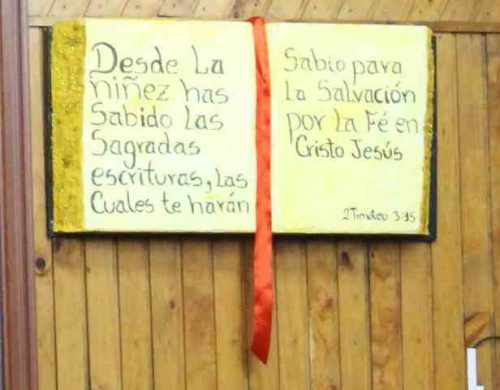 Desde La
niñez has
Sabido Las
Sagradas
escrituras, Las
Cuales te harán
Sabio para
La Salvación
por La Fé en
Cristo Jesús
2 Timoteo 3:15